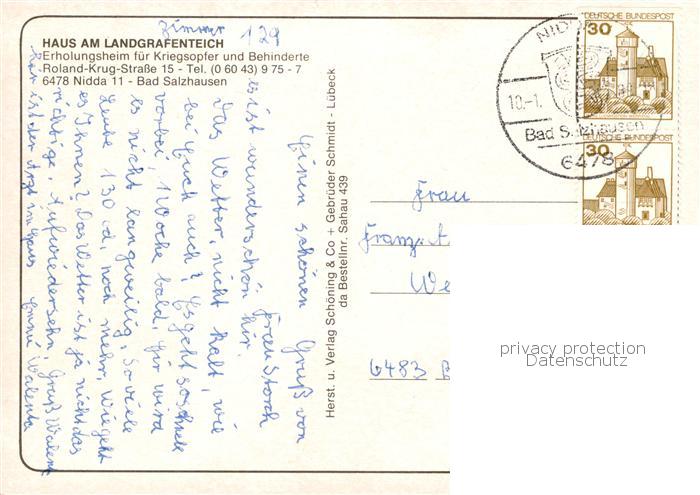 Zimmer 129
HAUS AM LANDGRAFENTEICH
Erholungsheim für Kriegsopfer und Behinderte
Roland-Krug-Straße 15 - Tel. (0 60 43) 9 75 - 7
6478 Nidda 11 - Bad Salzhausen
Einen schönen Gruß von
Frau Storch
es ist wunderschön hir.
Das Wetter, nicht kalt, wie
bei Euch auch? Es geht so schnell
vorbei, 1 Woche bald, hir wird
es nicht langweilig, so viele
Leute 130 id, noch mehr. Wie geht
es Ihnen? Das Wetter ist ja nicht das
richtige. Aufwiedersehn! Gruß Walenta
hir ist der Arzt im Haus Emmi Walenta
Herst. u. Verlag Schöning & Co + Gebrüder Schmidt - Lübeck
da Bestellnr. Sahau 439
DEUTSCHE BUNDESPOST
30
DEUTSCHE BUNDESPOST
30
10.-1.
Bad Salzhausen
6478
Frau
Franz. A
We
6483 B
privacy protection
Datenschutz